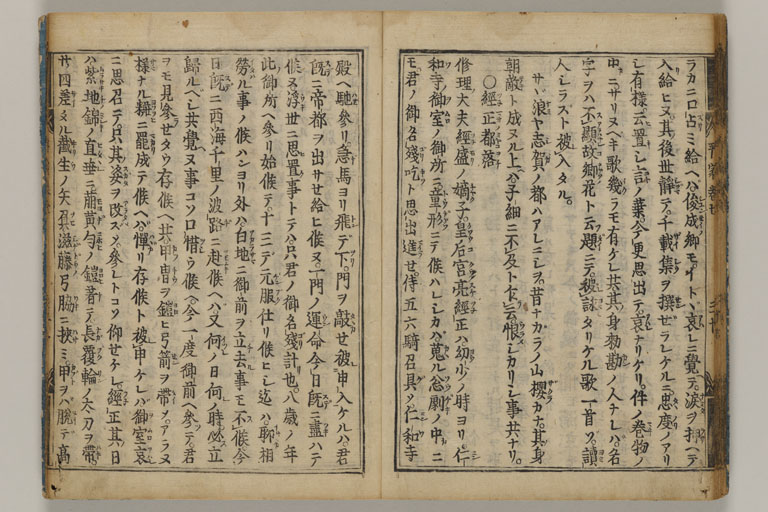 ラカニ口占ミ給ヘハ俊成卿モザイト哀レニ覺テ淚ヲ押ヘテ
入給ヒヌ其後世靜テ千載集ヲ撰セラレケルニ忠度ノアリ
シ有樣云置シ言ノ葉今更思出テ哀ナリケリ件ノ巻物ノ
中ニサリヌヘキ歌幾ラモ有ケレ共其身勅勘ノ人ナレハ名
字ヲハ不顯故鄕花ト云題ニテ被讀タリケル歌一首ソ讀
人シラスト被入タル
サヽ浪ヤ志賀ノ都ハアレニシヲ昔ナカラノ山櫻カナ其身
朝敵ト成ヌル上ハ子細ニ不及ト乍云恨シカリシ事共ナリ
〇經正都落
修理大夫經盛ノ嫡子皇后宮亮經正ハ幼少ノ時ヨリ仁
和寺御室ノ御所ニ童形ニテ候ハレシカハ蒐ル怱劇ノ中ニ
モ君ノ御名殘吃ト思出進セ侍五六騎召具シ仁和寺
殿ヘ馳參リ急馬ヨリ飛テ下門ヲ敲セ被申入ケルハ君
旣ニ帝都ヲ出サセ給ヒ候ヌ一門ノ運命今日旣ニ盡ハテ
候ヌ浮世ニ思置事トテハ只君ノ御名殘計也八歲ノ年
此御所ヘ參リ始候テ十三ニテ元服仕リ候ヒシ迄ハ聊相
勞ル事ノ候ハンヨリ外ハ白地ニ御前ヲ立去事モ不候今
日旣ニ西海千里ノ波路ニ赴候ヘハ又何ノ日何ノ時必立
歸ルヘシ共覺ヌ事コソ口惜ウ候ヘ今一度御前ヘ參テ君
ヲモ見參セタウ存候ヘ共甲冑ヲ鎧ヒ弓箭ヲ帶シアラヌ
樣ナル粧ニ罷成テ候ヘハ憚リ存候ト被申ケレハ御室哀
ニ思召テ只其姿ヲ改スシテ參レトコソ仰セケレ經正其日
ハ紫地錦ノ直垂ニ萠黃匂ノ鎧著テ長覆輪ノ太刀ヲ帶
廿四差タル截生ノ矢負滋藤弓脇ニ挾ミ甲ヲハ脱テ高